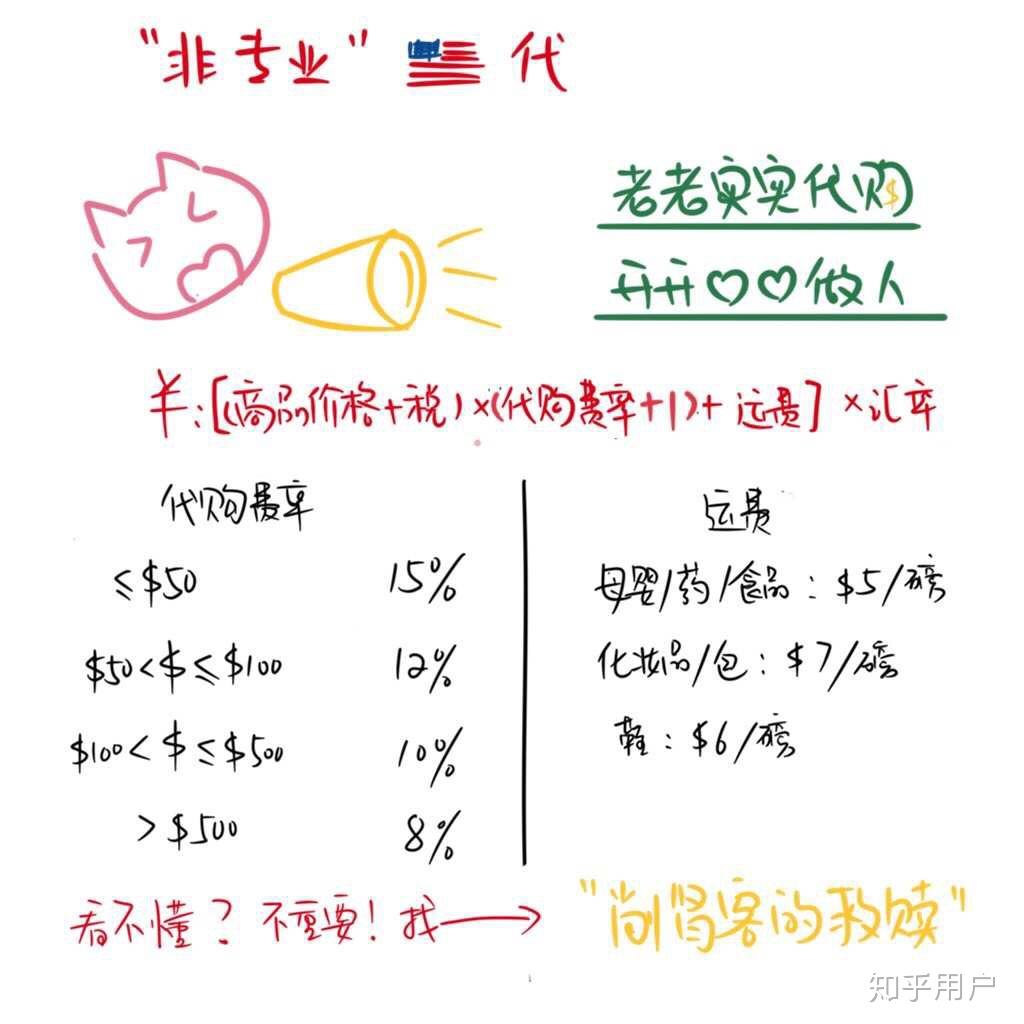 "非专业" 代
老老实实代购
开开♡♡做人
￥:[(商品价格+税)×(代购费率+1)+运费]×汇率
代购费率
≤$50 15%
$50<$≤$100 12%
$100<$≤$500 10%
>$500 8%
运费
母婴/药/食品:$5/磅
化妆品/包:$7/磅
鞋:$6/磅
看不懂?不重要!找→
"尚胃客的救赎"
知乎用户